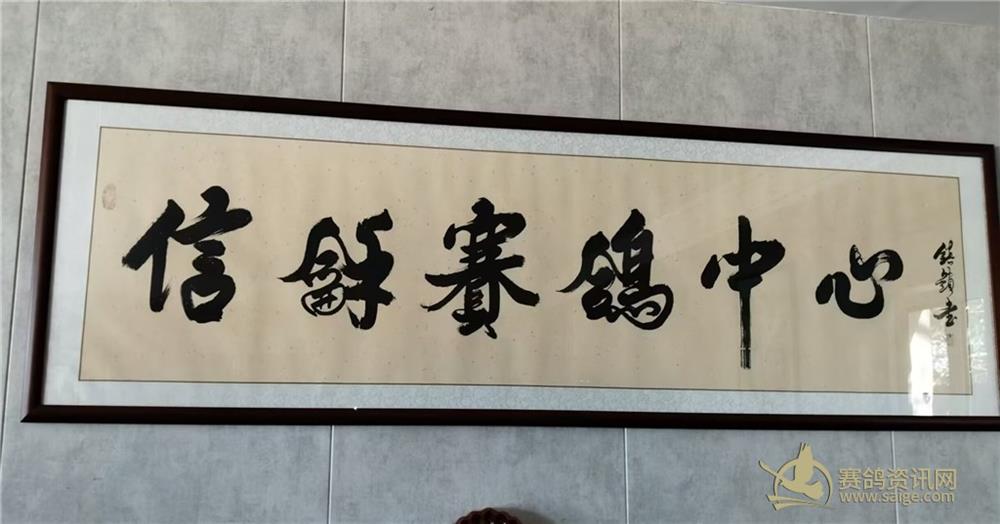 信龢賽鴿中心
赛鸽资讯网
www.saige.com